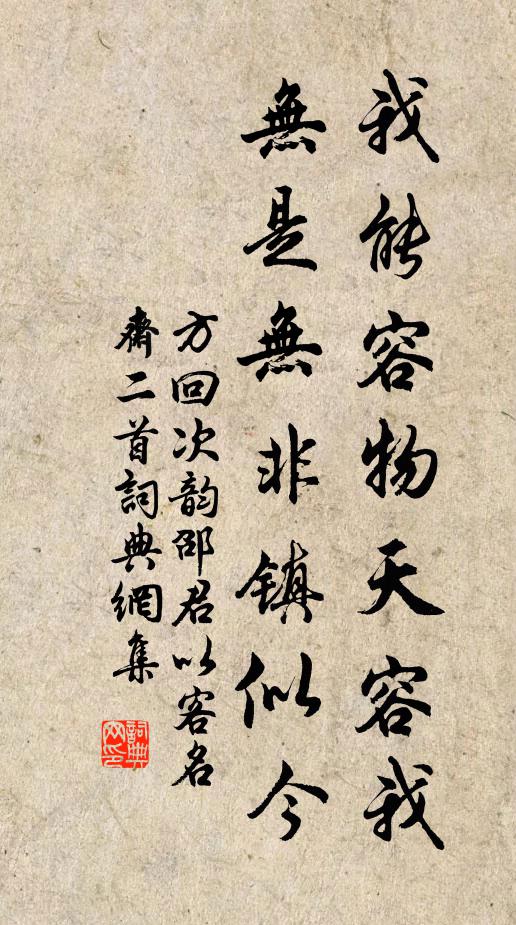 我能容物天容我
無是無非鎮似今
方回次韵邵君以容名
齋二首詞典網集
詞典网印